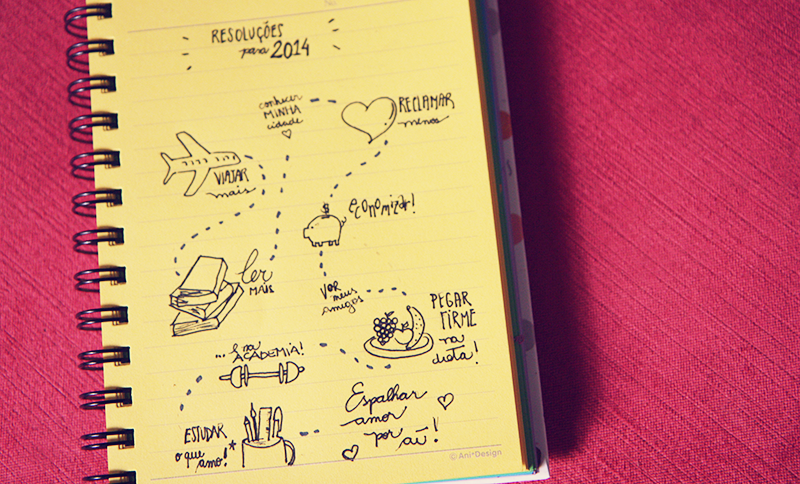 RESOLUÇÕES
para 2014
conhecer
MINHA
cidade
RECLAMAR
menos
VIAJAR
mais
economizar!
ler
MAIS
VER
meus
amigos
PEGAR
FIRME
na
dieta!
... E na
ACADEMIA!
ESTUDAR
o que
amo!*
Espalhar
amor
por
aí!
© Ani*Design